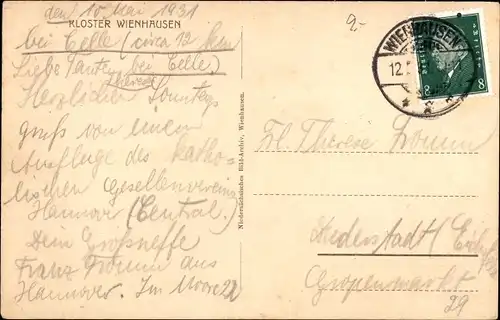 den 10 Mai 1931
KLOSTER WIENHAUSEN
bei Celle (circa 12 km
bei Celle)
Liebe Tante Therese
Herzlichen Sonntags
gruß von einem
Ausfluge des katho-
lischen Gesellenvereins
Hannover (Central).
Dein Großneffe
Franz aus
Hannover. Im Moore 22
Niedersächsisches Bild-Archiv, Wienhausen.
2-
WIENHAUSEN
12.5
8 8
Frl. Therese
Gropenmarkt
29